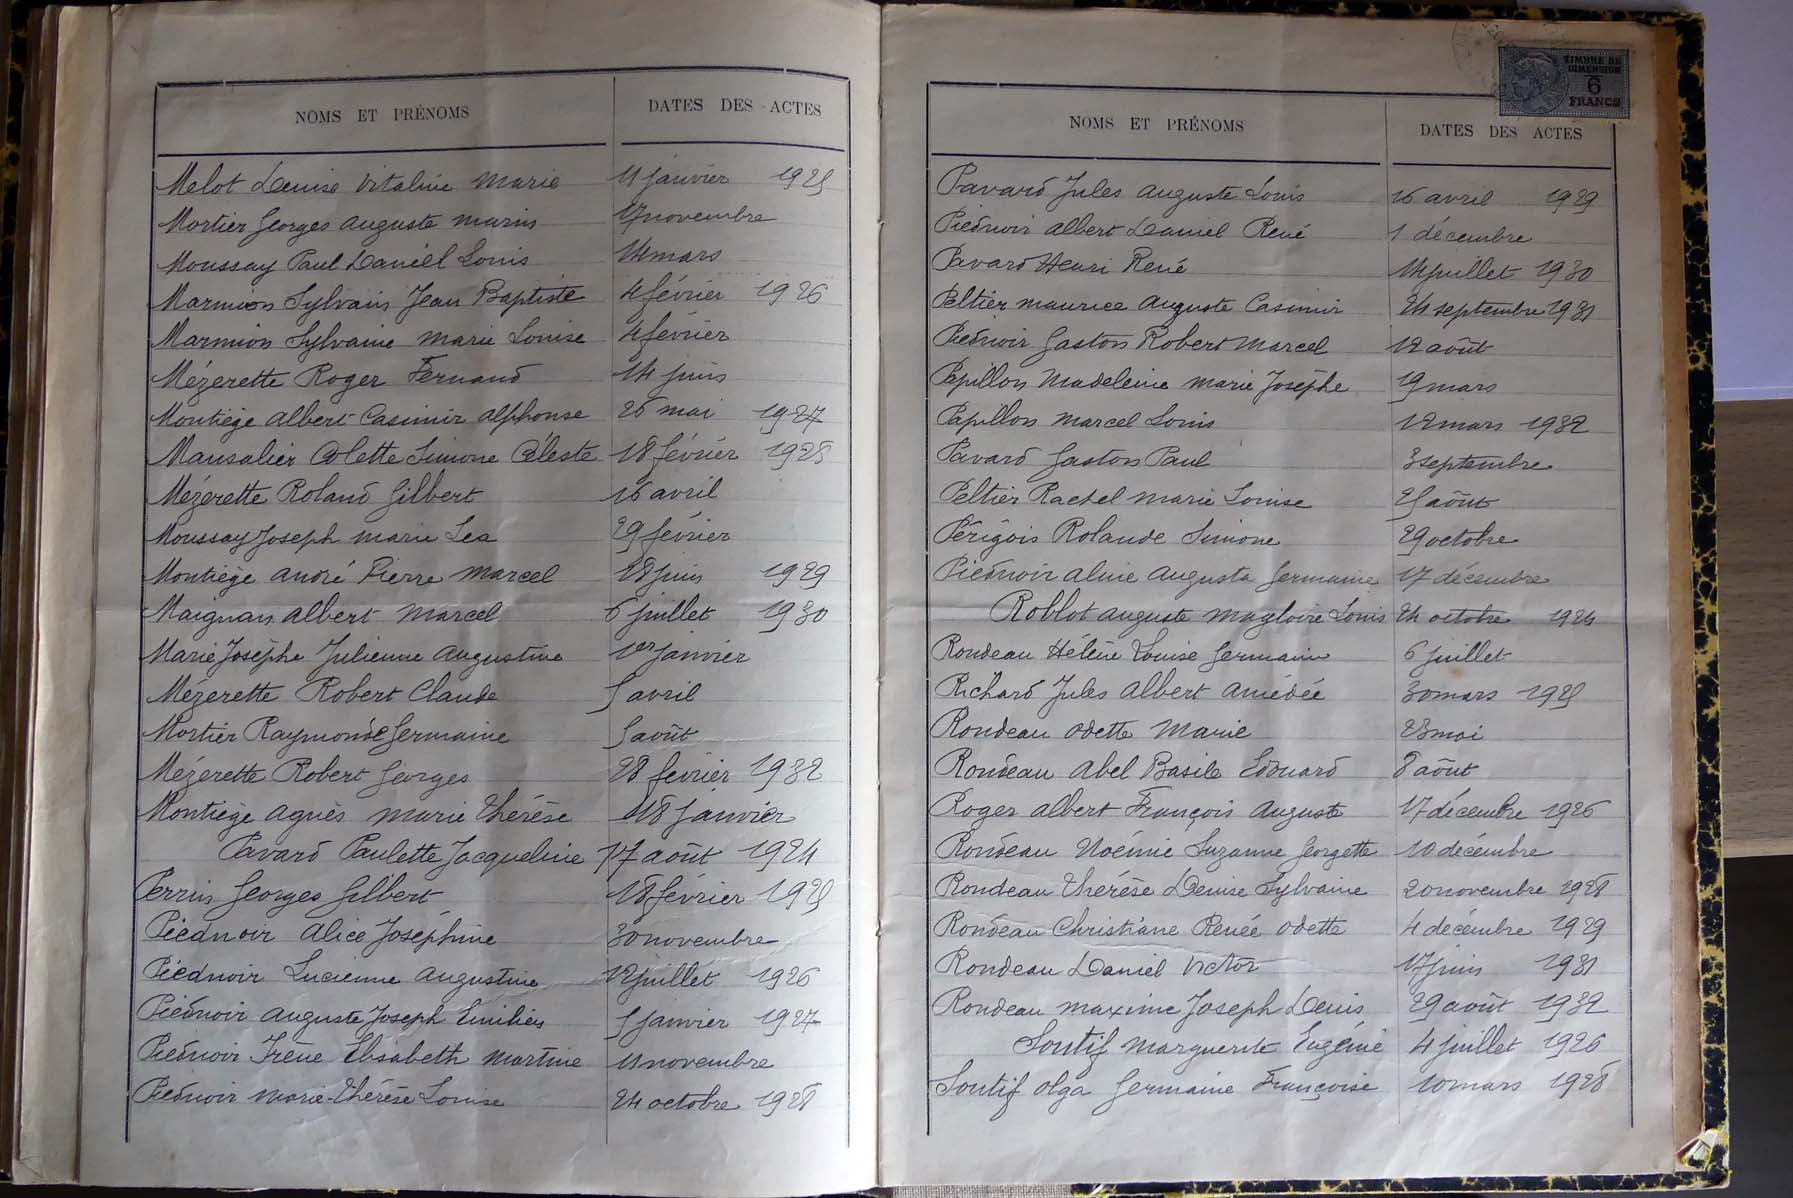 NOMS ET PRÉNOMS DATES DES ACTES
Melot Denise Vitaline Marie 11 janvier 1925
Mortier Georges Auguste Marin 17 novembre
Moussay Paul Daniel Louis 14 mars
Marmion Sylvain Jean Baptiste 4 février 1926
Marmion Sylvaine Marie Louise 4 février
Mézerette Roger Fernand 14 juin
Montiège Albert Casimir Alphonse 26 mai 1927
Mansalier Colette Simone Céleste 18 février 1928
Mézerette Roland Gilbert 16 avril
Moussay Joseph Marie Léa 29 février
Montiège André Pierre Marcel 28 juin 1929
Maignan Albert Marcel 6 juillet 1930
Marie Josèphe Julienne Augustine 1er janvier
Mézerette Robert Claude 5 avril
Mortier Raymonde Germaine 5 août
Mézerette Robert Georges 28 février 1932
Montiège Agnès Marie Thérèse 18 janvier
Pavard Paulette Jacqueline 17 août 1924
Perrin Georges Gilbert 18 février 1925
Piednoir Alice Joséphine 30 novembre
Piednoir Lucienne Augustine 12 juillet 1926
Piednoir Auguste Joseph Emilien 5 janvier 1927
Piednoir Irène Elisabeth Martine 11 novembre
Piednoir Marie-Thérèse Louise 24 octobre 1928
TIMBRE DE
DIMENSION
6
FRANCS
NOMS ET PRÉNOMS DATES DES ACTES
Pavard Jules Auguste Louis 16 avril 1929
Piednoir Albert Daniel René 1 décembre
Pavard Henri René 14 juillet 1930
Peltier Maurice Auguste Casimir 24 septembre 1931
Piednoir Gaston Robert Marcel 12 août
Papillon Madeleine Marie Josèphe 19 mars
Papillon Marcel Louis 12 mars 1932
Pavard Gaston Paul 3 septembre
Peltier Rachel Marie Louise 25 août
Périgois Rolande Simone 29 octobre
Piednoir Aline Augusta Germaine 17 décembre
Roblot Auguste Magloire Louis 24 octobre 1924
Rondeau Hélène Louise Germaine 6 juillet
Richard Jules Albert Amédée 30 mars 1925
Rondeau Odette Marie 28 mai
Rondeau Abel Basile Edouard 8 août
Roger Albert François Auguste 17 décembre 1926
Rondeau Noémie Suzanne Georgette 10 décembre
Rondeau Thérèse Denise Sylvaine 20 novembre 1928
Rondeau Christiane Renée Odette 4 décembre 1929
Rondeau Daniel Victor 17 juin 1931
Rondeau Maxime Joseph Denis 29 août 1932
Soutif Marguerite Eugénie 4 juillet 1926
Soutif Olga Germaine Françoise 10 mars 1928